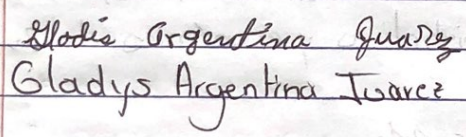 Glodis Argentina Juarez
Gladys Argentina Juarez